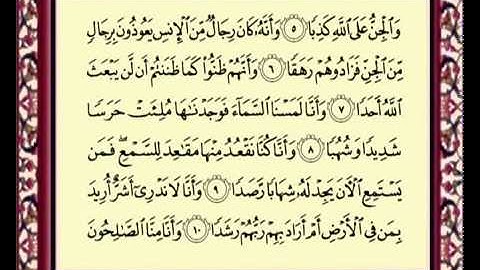 وَالْجِنُّ عَلَى اللَّهِ كَذِبًا ۝٥ وَأَنَّهُ كَانَ رِجَالٌ مِّنَ الْإِنسِ يَعُوذُونَ بِرِجَالٍ
مِّنَ الْجِنِّ فَزَادُوهُمْ رَهَقًا ۝٦ وَأَنَّهُمْ ظَنُّوا كَمَا ظَنَنتُمْ أَن لَّن يَبْعَثَ
اللَّهُ أَحَدًا ۝٧ وَأَنَّا لَمَسْنَا السَّمَاءَ فَوَجَدْنَاهَا مُلِئَتْ حَرَسًا
شَدِيدًا وَشُهُبًا ۝٨ وَأَنَّا كُنَّا نَقْعُدُ مِنْهَا مَقَاعِدَ لِلسَّمْعِ ۖ فَمَن
يَسْتَمِعِ الْآنَ يَجِدْ لَهُ شِهَابًا رَّصَدًا ۝٩ وَأَنَّا لَا نَدْرِي أَشَرٌّ أُرِيدَ
بِمَن فِي الْأَرْضِ أَمْ أَرَادَ بِهِمْ رَبُّهُمْ رَشَدًا ۝١٠ وَأَنَّا مِنَّا الصَّالِحُونَ